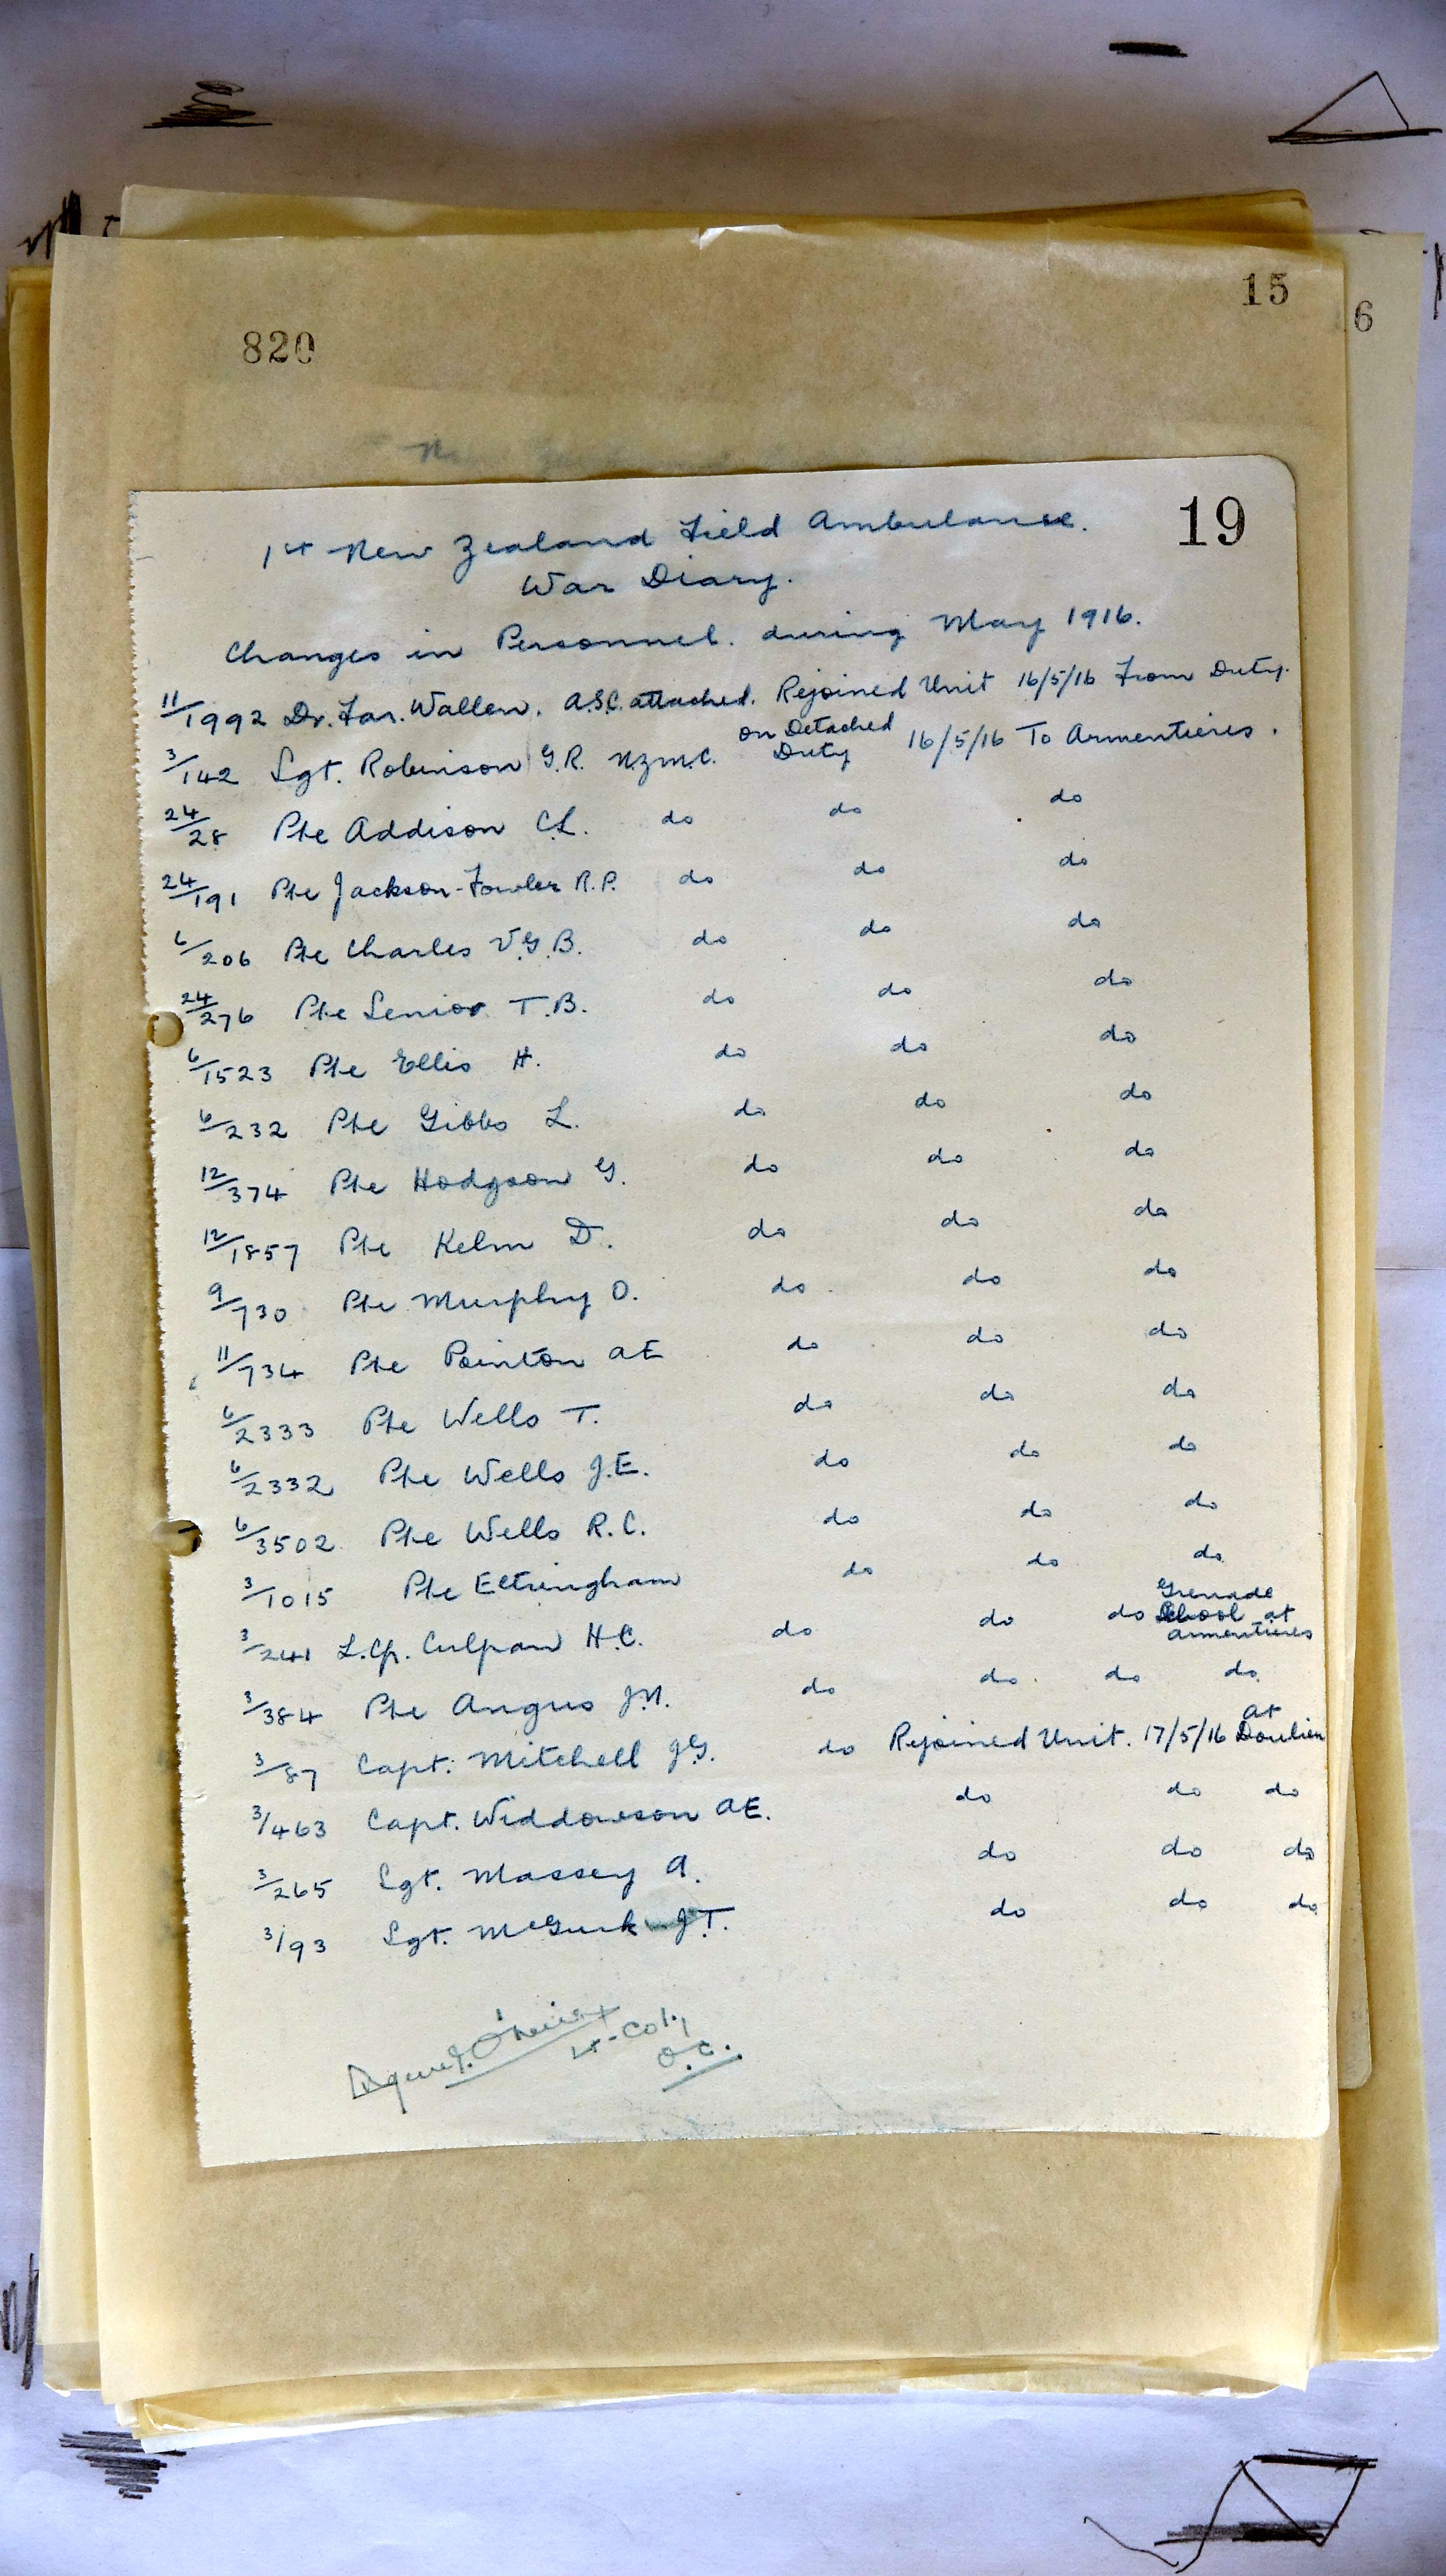 15
6
820
19
1st New Zealand Field Ambulance.
War Diary.
Changes in Personnel. during May 1916.
11/1992 Dr. Far. Wallen. A.S.C. attached. Rejoined Unit 16/5/16 From Duty.
3/142 Sgt. Robinson G.R. N.Z.M.C. on Detached Duty 16/5/16 To Armentieres.
24/28 Pte Addison C.L. do do do
24/191 Pte Jackson-Fowler R.P. do do do
6/206 Pte Charles V.G.B. do do do
24/276 Pte Senior T.B. do do do
6/1523 Pte Ellis H. do do do
6/232 Pte Gibbs L. do do do
12/374 Pte Hodgson G. do do do
12/1857 Pte Kelm D. do do do
9/730 Pte Murphy O. do do do
11/734 Pte Pointon A E do do do
6/2333 Pte Wells T. do do do
6/2332 Pte Wells J.E. do do do
6/3502 Pte Wells R.C. do do do
3/1015 Pte Eltringham do do do
3/241 L.Cp. Culpan H.C. do do do Grenade School at Armentieres
3/384 Pte Angus J.M. do do. do do.
3/87 Capt. Mitchell J.G. do Rejoined Unit. 17/5/16 at Doulieu
3/463 Capt. Widdowson A E. do do do
3/265 Sgt. Massey A. do do do
3/93 Sgt. McGurk J.T. do do do
Lt-Col.,
O.C.